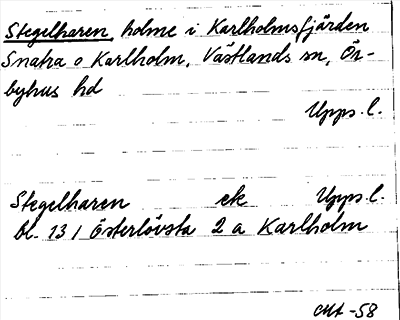 Stegelharen, holme i Karlholmsfjärden
Snatra o Karlholm, Västlands sn, Ör-
byhus hd
Upps. l.
Stegelharen ek Upps. l.
bl. 131 Österlövsta 2 a Karlholm
-58